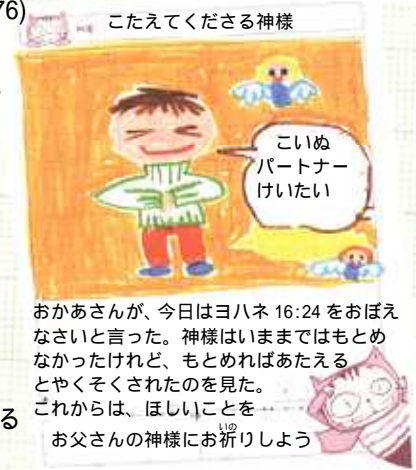 76)
こたえてくださる神様
こいぬ
パートナー
けいたい
おかあさんが、今日はヨハネ 16:24 をおぼえ
なさいと言った。神様はいままではもとめ
なかったけれど、もとめればあたえる
とやくそくされたのを見た。
これからは、ほしいことを
る
お父さんの神様にお祈りしよう
いの